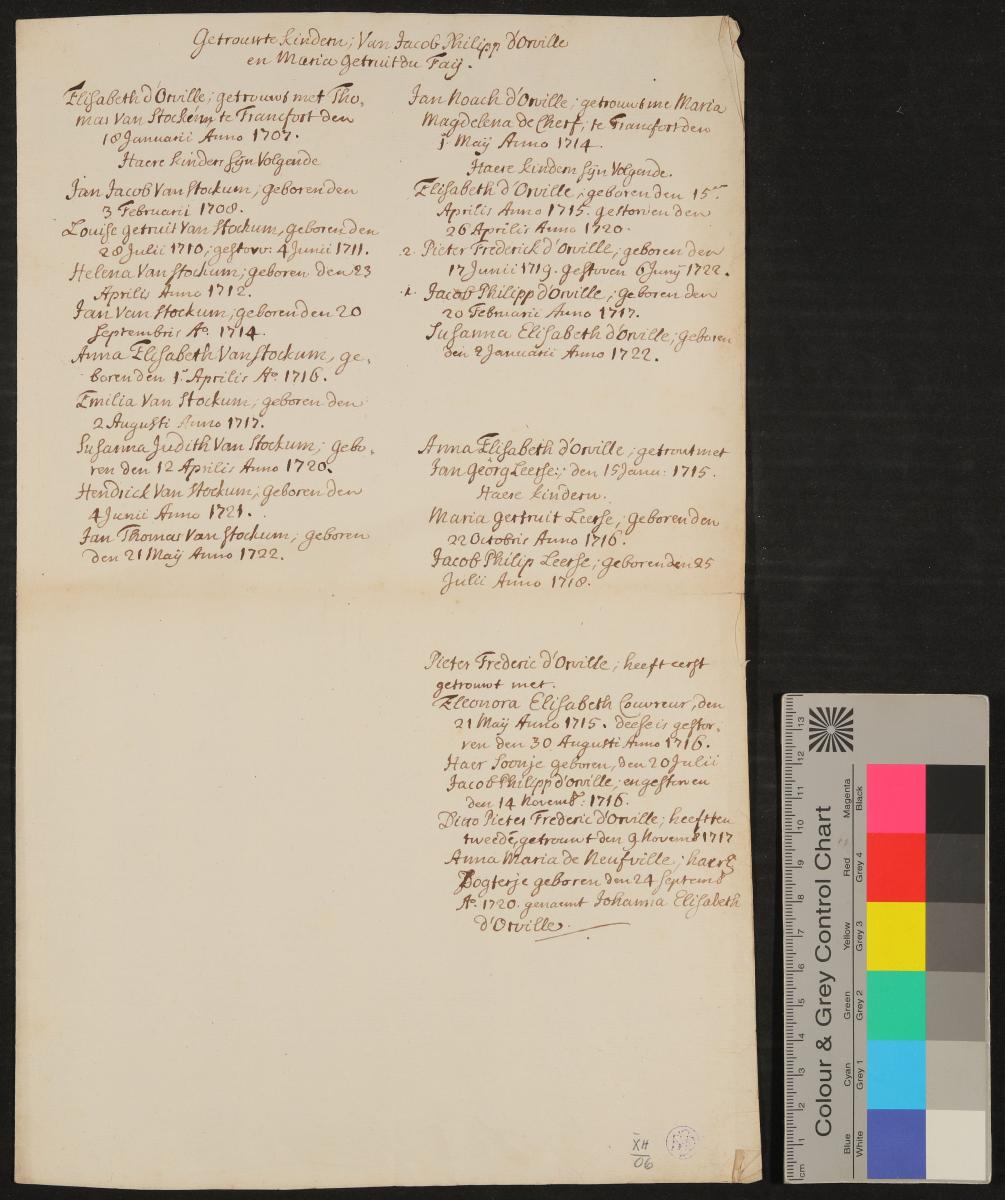 Getrouwte kindern; Van Jacob Philipp d'Orville
en Maria Getruit du Faÿ.
Elisabeth d'Orville; getrouwt met Tho-
mas Van Stockum te Francfort den
18 Januarii Anno 1707.
Haere kinders sijn Volgende
Jan Jacob Van Stockum; geboren den
3 Februarii 1708.
Louise getruit Van Stockum, geboren den
28 Julii 1710, gestorv: 4 Junii 1711.
Helena Van Stockum; geboren den 23
Aprilis Anno 1712.
Jan Van Stockum; geboren den 20
Septembris Ao. 1714.
Anna Elisabeth Van Stockum, ge-
boren den 1. Aprilis Ao 1716.
Emilia Van Stockum; geboren den
2 Augusti Anno 1717.
Susanna Judith Van Stockum; gebo-
ren den 12 Aprilis Anno 1720.
Hendrick Van Stockum; geboren den
4 Junii Anno 1721.
Jan Thomas Van Stockum; geboren
den 21 Maÿ Anno 1722.
Jan Noach d'Orville; getrouwt me Maria
Magdelena de Cherf; te Francfort den
1. Maÿ Anno 1714.
Haere kindern sijn Volgende.
Elisabeth d'Orville; geboren den 15en
Aprilis Anno 1715. gestorven den
26 Aprilis Anno 1720.
2. Pieter Frederick d'Orville; geboren den
17 Junii 1719. gestoven 6 Junÿ 1722.
1. Jacob Philipp d'Orville; geboren den
20 Februarii Anno 1717.
Susanna Elisabeth d'Orville; geboren
den 2 Januarii Anno 1722.
Anna Elisabeth d'Orville; getrout met
Jan Georg Leerse; den 15 Janu: 1715.
Haere kindern.
Maria gertruit Leerse, geboren den
22 Octobris Anno 1716.
Jacob Philip Leerse; geboren den 25
Julii Anno 1718.
Pieter Frederic d'Orville; heeft eerst
getrouwt met.
Eleonora Elisabeth Couvreur, den
21 Maÿ Anno 1715. deese is gestor-
ven den 30 Augusti Anno 1716.
Haer Soonje geboren, den 20 Julii
Jacob Philipp d'Orville; en gestorven
den 14 Novemb: 1716.
Ditto Pieter Frederic d'Orville; heeft ten
tweede, getrouwt den 9 Novemb 1717
Anna Maria de Neufville; haer
Dogterje geboren den 24 Septemb
Ao. 1720. genaemt Johanna Elisabeth
d'Orville.
XII
06
Colour & Grey Control Chart
Blue Cyan Green Yellow Red Magenta
White Grey 1 Grey 2 Grey 3 Grey 4 Black
cm 1 2 3 4 5 6 7 8 9 10 11 12 13